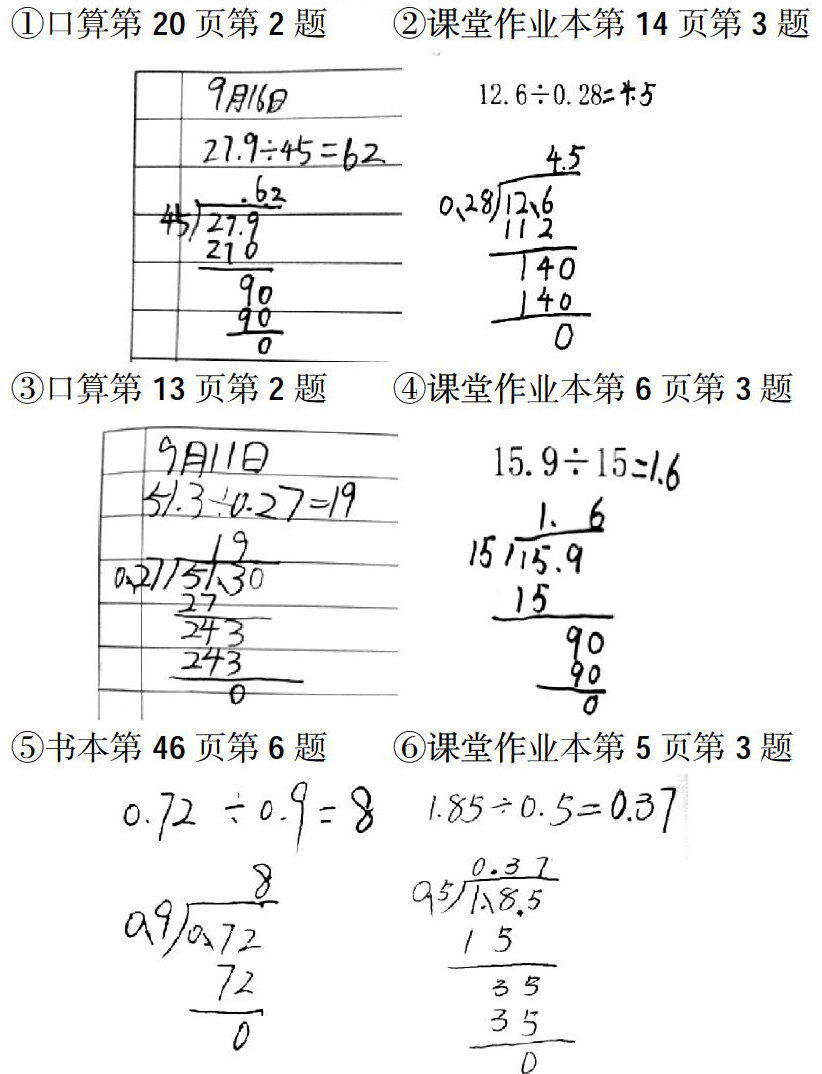 ①口算第 20 页第 2 题
②课堂作业本第 14 页第 3 题
9月16日
27.9÷45=62
.62
45 27.9
270
90
90
0
12.6÷0.28=4.5
4.5
0.28 12.6
112
140
140
0
③口算第 13 页第 2 题
④课堂作业本第 6 页第 3 题
9月11日
51.3÷0.27=19
19
0.27 51.30
27
243
243
0
15.9÷15=1.6
1. 6
15 15.9
15
90
90
0
⑤书本第 46 页第 6 题
⑥课堂作业本第 5 页第 3 题
0.72 ÷0.9=8
8
0.9 0.72
72
0
1.85÷0.5=0.37
0.37
0.5 1.8.5
15
35
35
0